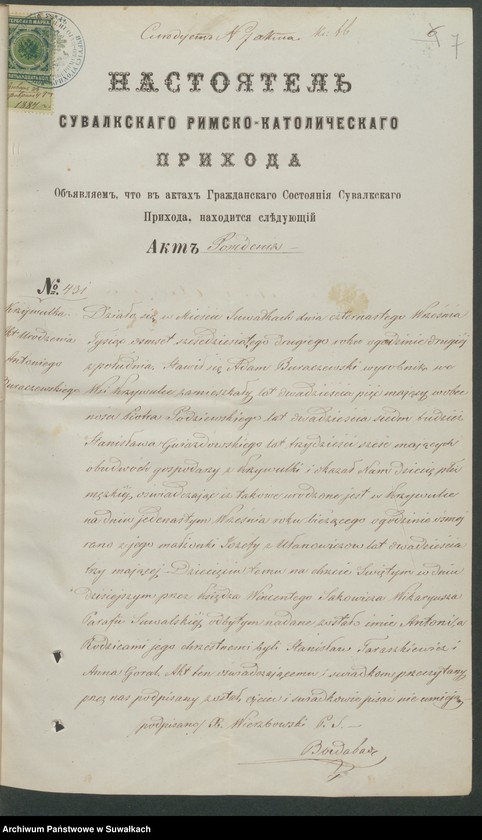 Следуетъ къ Z акта. No. 46.
6 7
1884
НАСТОЯТЕЛЬ
СУВАЛКСКАГО РИМСКО-КАТОЛИЧЕСКАГО
ПРИХОДА
Объявляемъ, что въ актахъ Гражданскаго Состоянія Сувалкскаго
Прихода, находится слѣдующій
Актъ Рожденія
№ 431
Krzywulka
Akt Urodzenia
Antoniego
Buczewskiego
Działo się w Mieście Suwałkach dnia czternastego Września
Tysiąc ośmset sześćdziesiątego drugiego roku o godzinie drugiej
z południa. Stawił się Adam wyrobnik we
Wsi Krzywulce zamieszkały, lat dwadzieścia pięć mający w obec-
ności Piotra Podziewskiego lat dwadzieścia siedm tudzież
Stanisława Gwiazdowskiego lat trzydzieści sześć mających
obudwóch gospodarzy z Krzywulki i okazał Nam dziecię płci
męzkiéj, oświadczając iż takowe urodzone jest w Krzywulce
na dniu jedenastym Września roku bieżącego o godzinie ósméj
rano z jego małżonki Józefy z Ułanowiczów lat dwadzieścia
trzy mającej. Dziecięciu temu na chrzcie Świętym w dniu
dzisiejszym przez księdza Wincentego Sakowicza Wikaryusza
Parafii Suwalskiéj odbytym nadane zostało imie Antoni, a
Rodzicami jego chrzestnemi byli Stanisław Taraszkiewicz i
Anna Goral. Akt ten oświadczającemu i świadkom przeczytany,
przez nas podpisany został ojciec i świadkowie pisać nie umieją
podpisano X. Wierzbowski P. S.
Archiwum Państwowe w Suwałkach